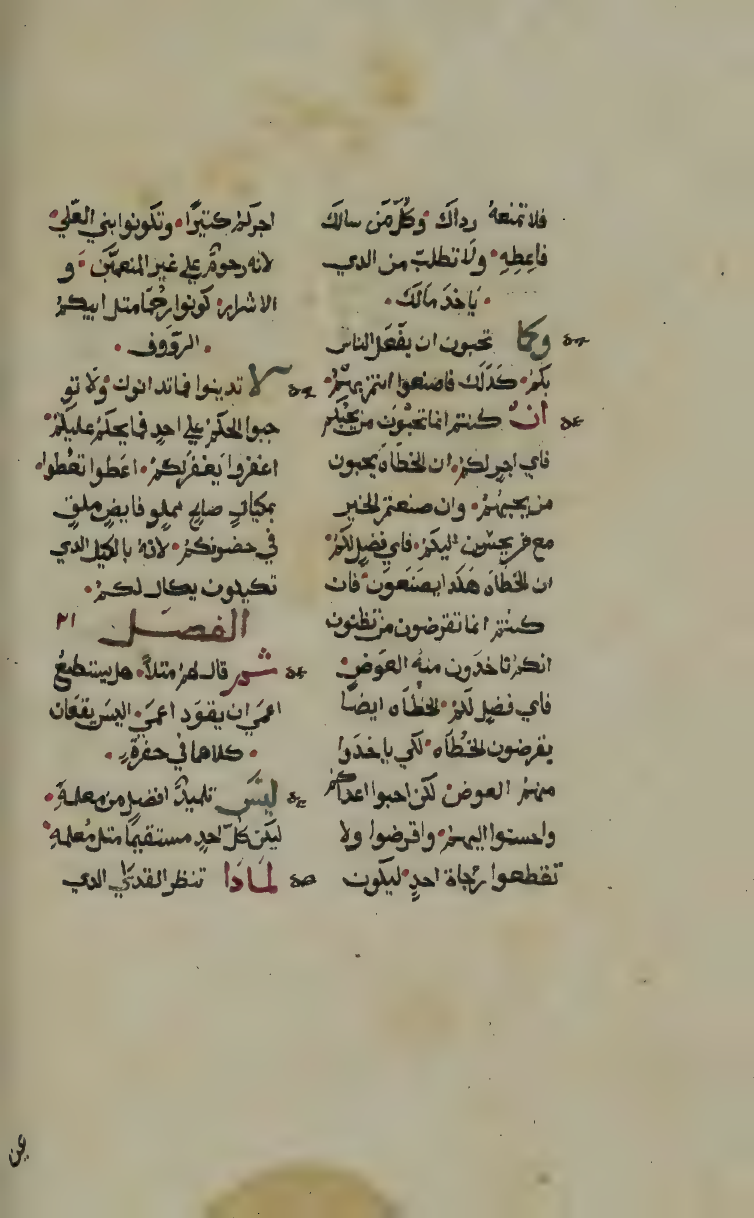 فلا تمنعهُ رداك • وكُلّ مَن سالك
فاعِطِهِ • ولَا تطلبّ من الدي
• يَاخدَ مَالَك •
وكما تحبون ان يفَعَل الناس
بكمُ • كَدَلَك فاصنعوا انتم بهمُ •
ان كنتم انما تحبُون من يحُبكم
فاي اجرٍ لكمُ • ان الخطاه يحبون
من يحبهمُ • وان صنعتم الخير
مع من يحسن اليكمُ • فاي فضلٍ لكمُ •
ان الخطاه هَكَدا يصَنَعوَن • فان
كنتم انما تقرضون من تظنون
انكم تاخدَون منهُ العوَضِ •
فاي فضلٍ لكمُ • الخطَاه ايضًا
يقرضون الخُطاَه • لكي ياخدَوا
منهمُ العوض • لكن احبوا اعداكم
واحسنوا اليهمُ • واقرضوا ولا
تقطعوا رَجاة احدٍ • ليكون
اجركمُ كتيرًا • وتكونوا بني العَلي •
لانه رحومٌ علي غير المنعمَين • و
الاشرار • كونوا رحُمَا متل ابيكمُ
• الروَوف •
لا تدينوا فما تدانون • ولَا تو
جبوا الحكمُ علي احدٍ فما يحكمُ عليكمُ •
اغفروا يَغفرَلكمُ • اعَطوا تعُطوا •
بمكيالٍ صالحٍ مملوٍ فايضٍ ملقٍ
في حضونكمُ • لانهُ بالكيل الدي
تكيلون يكال لكمُ •
الفصَل ٢١
ثم قال لهمُ متلاً • هل يستطيعُ
اعمَي ان يقوَد اعمَي • اليسَ يقعَان
• كلاهما في حفرةٍ •
ليسَ تلميدٌ افضل من معلمهِ •
ليَكن كلّ احدٍ مستقيمًا متل مُعلمهِ •
لمَادَا تنظر القدَيَ الدي
عن